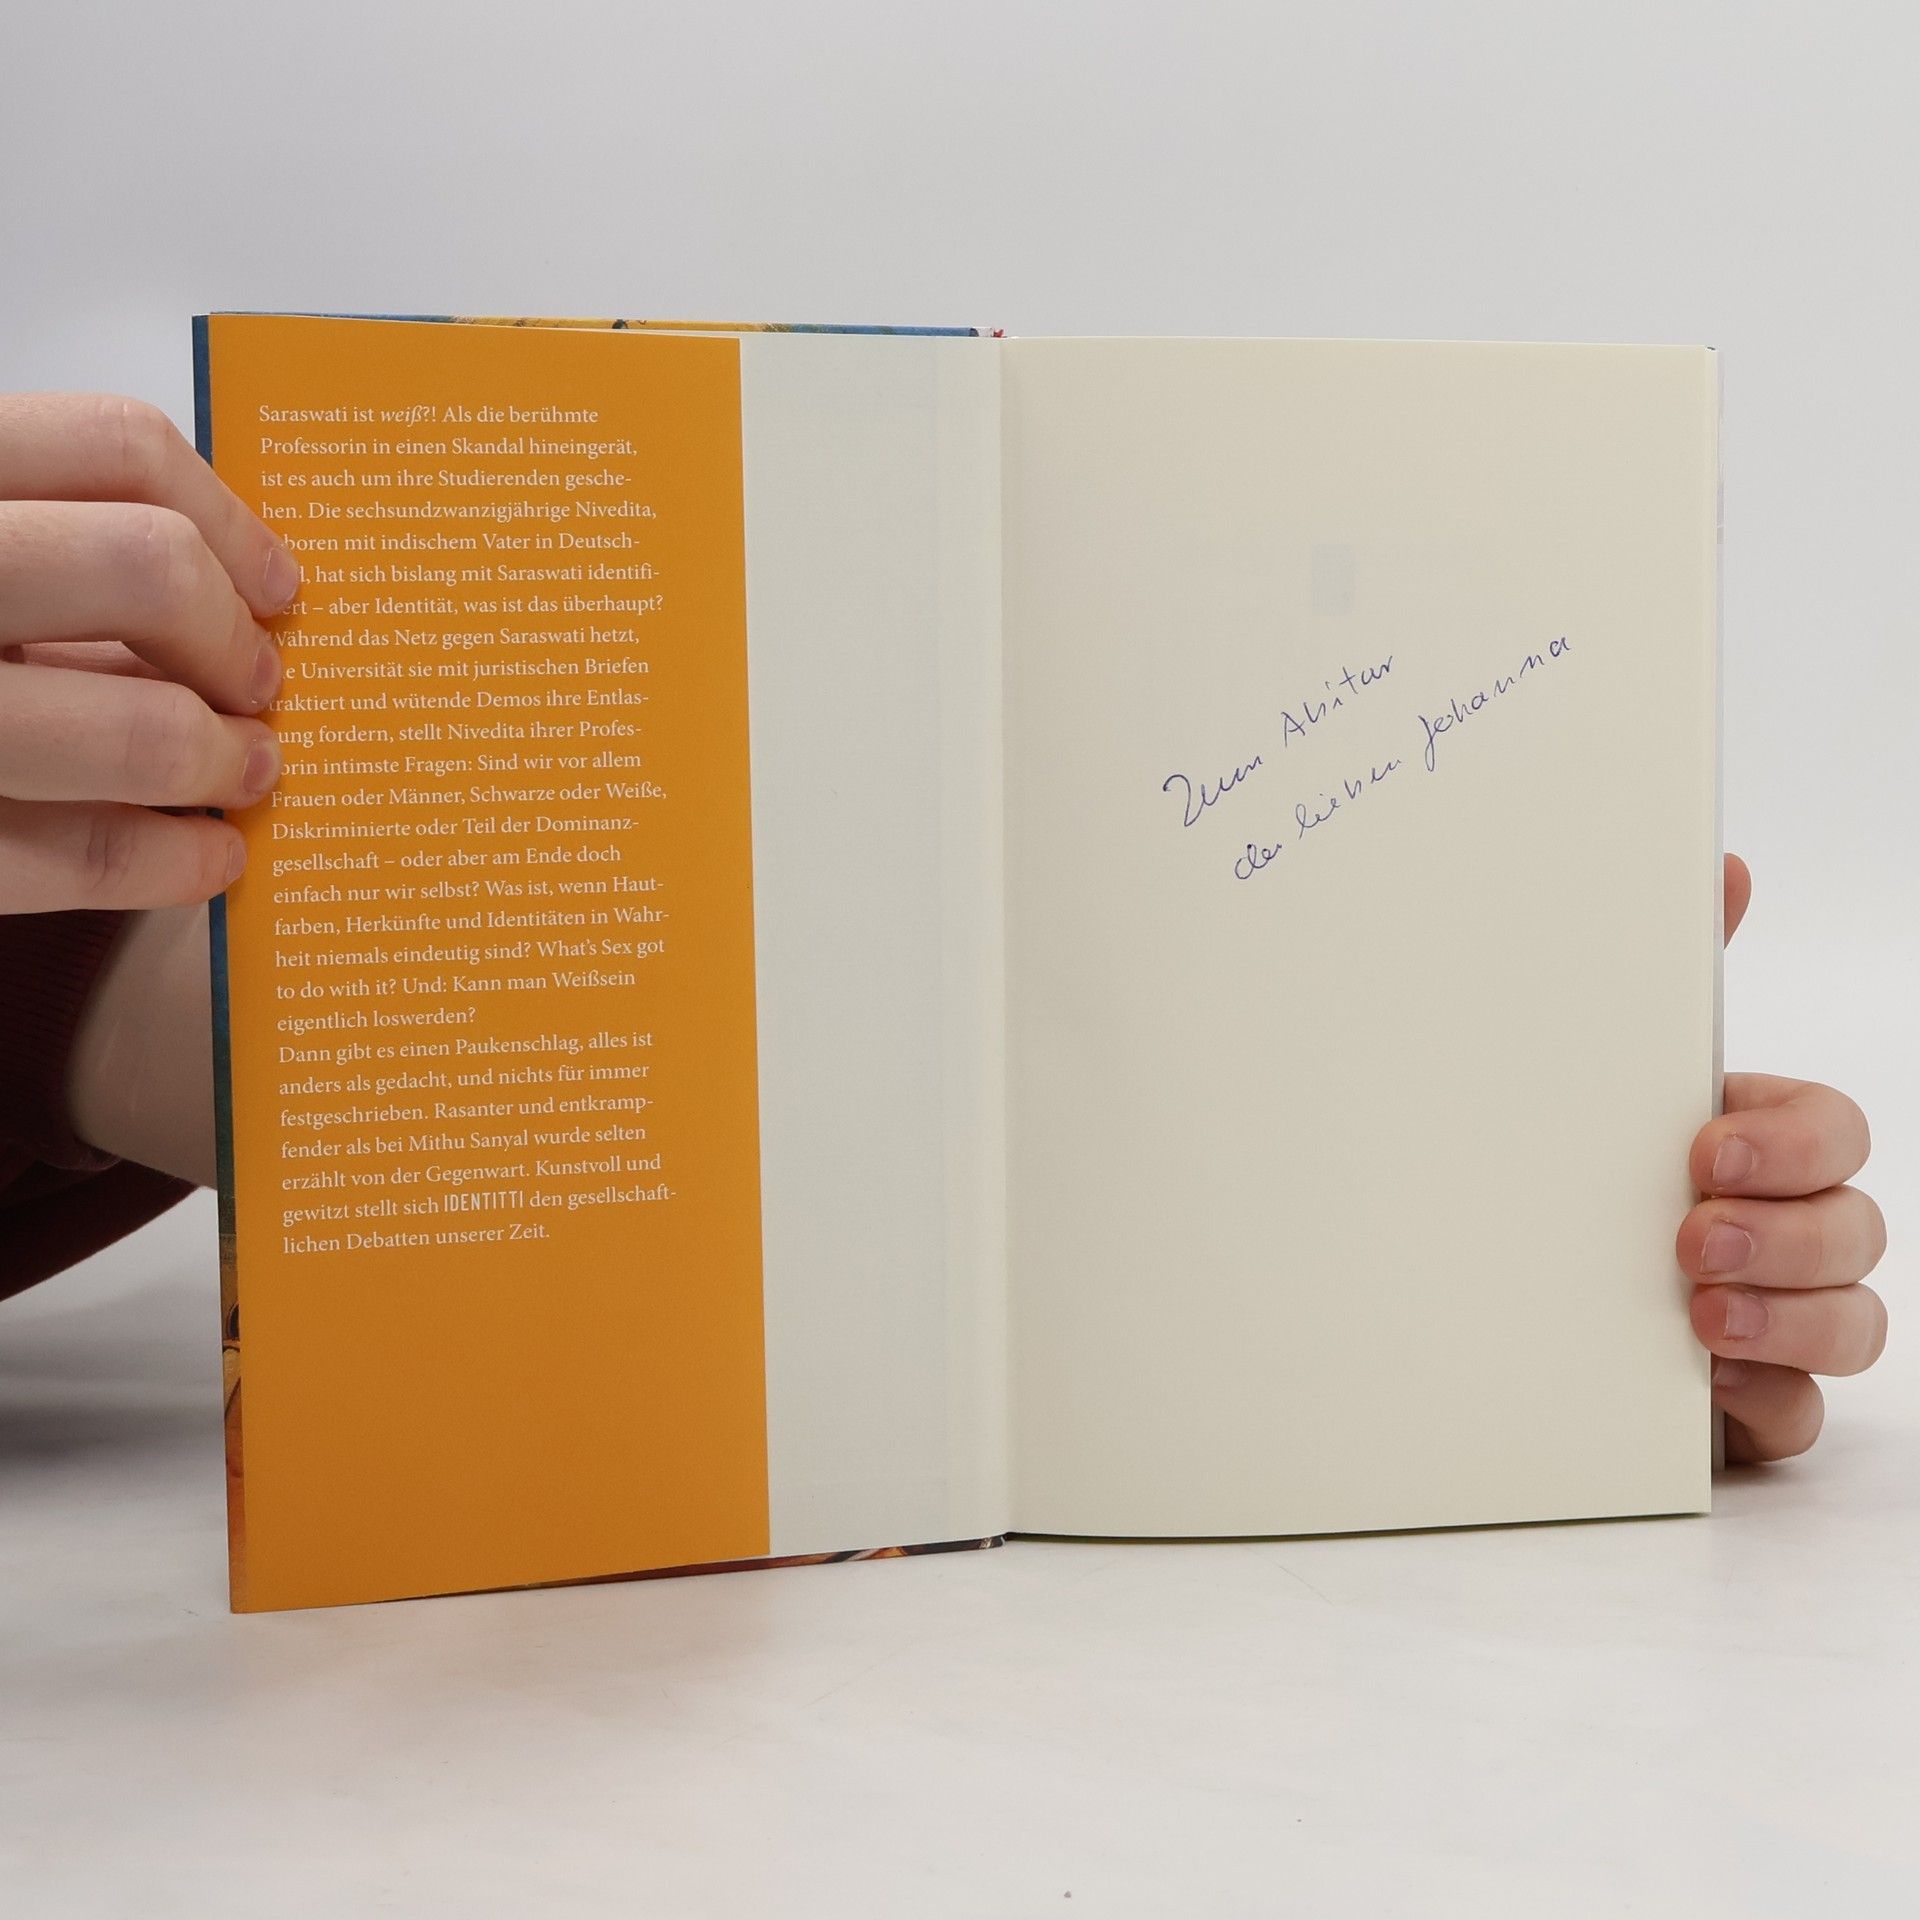 Saraswati ist weiß?! Als die berühmte
Professorin in einen Skandal hineingerät,
ist es auch um ihre Studierenden gesche-
hen. Die sechsundzwanzigjährige Nivedita,
boren mit indischem Vater in Deutsch-
hat sich bislang mit Saraswati identifi-
ert – aber Identität, was ist das überhaupt?
Während das Netz gegen Saraswati hetzt,
e Universität sie mit juristischen Briefen
traktiert und wütende Demos ihre Entlas-
ung fordern, stellt Nivedita ihrer Profes-
orin intimste Fragen: Sind wir vor allem
Frauen oder Männer, Schwarze oder Weiße,
Diskriminierte oder Teil der Dominanz-
gesellschaft – oder aber am Ende doch
einfach nur wir selbst? Was ist, wenn Haut-
farben, Herkünfte und Identitäten in Wahr-
heit niemals eindeutig sind? What's Sex got
to do with it? Und: Kann man Weißsein
eigentlich loswerden?
Dann gibt es einen Paukenschlag, alles ist
anders als gedacht, und nichts für immer
festgeschrieben. Rasanter und entkramp-
fender als bei Mithu Sanyal wurde selten
erzählt von der Gegenwart. Kunstvoll und
gewitzt stellt sich IDENTITTI den gesellschaft-
lichen Debatten unserer Zeit.
Zum Abitur
der lieben Johanna